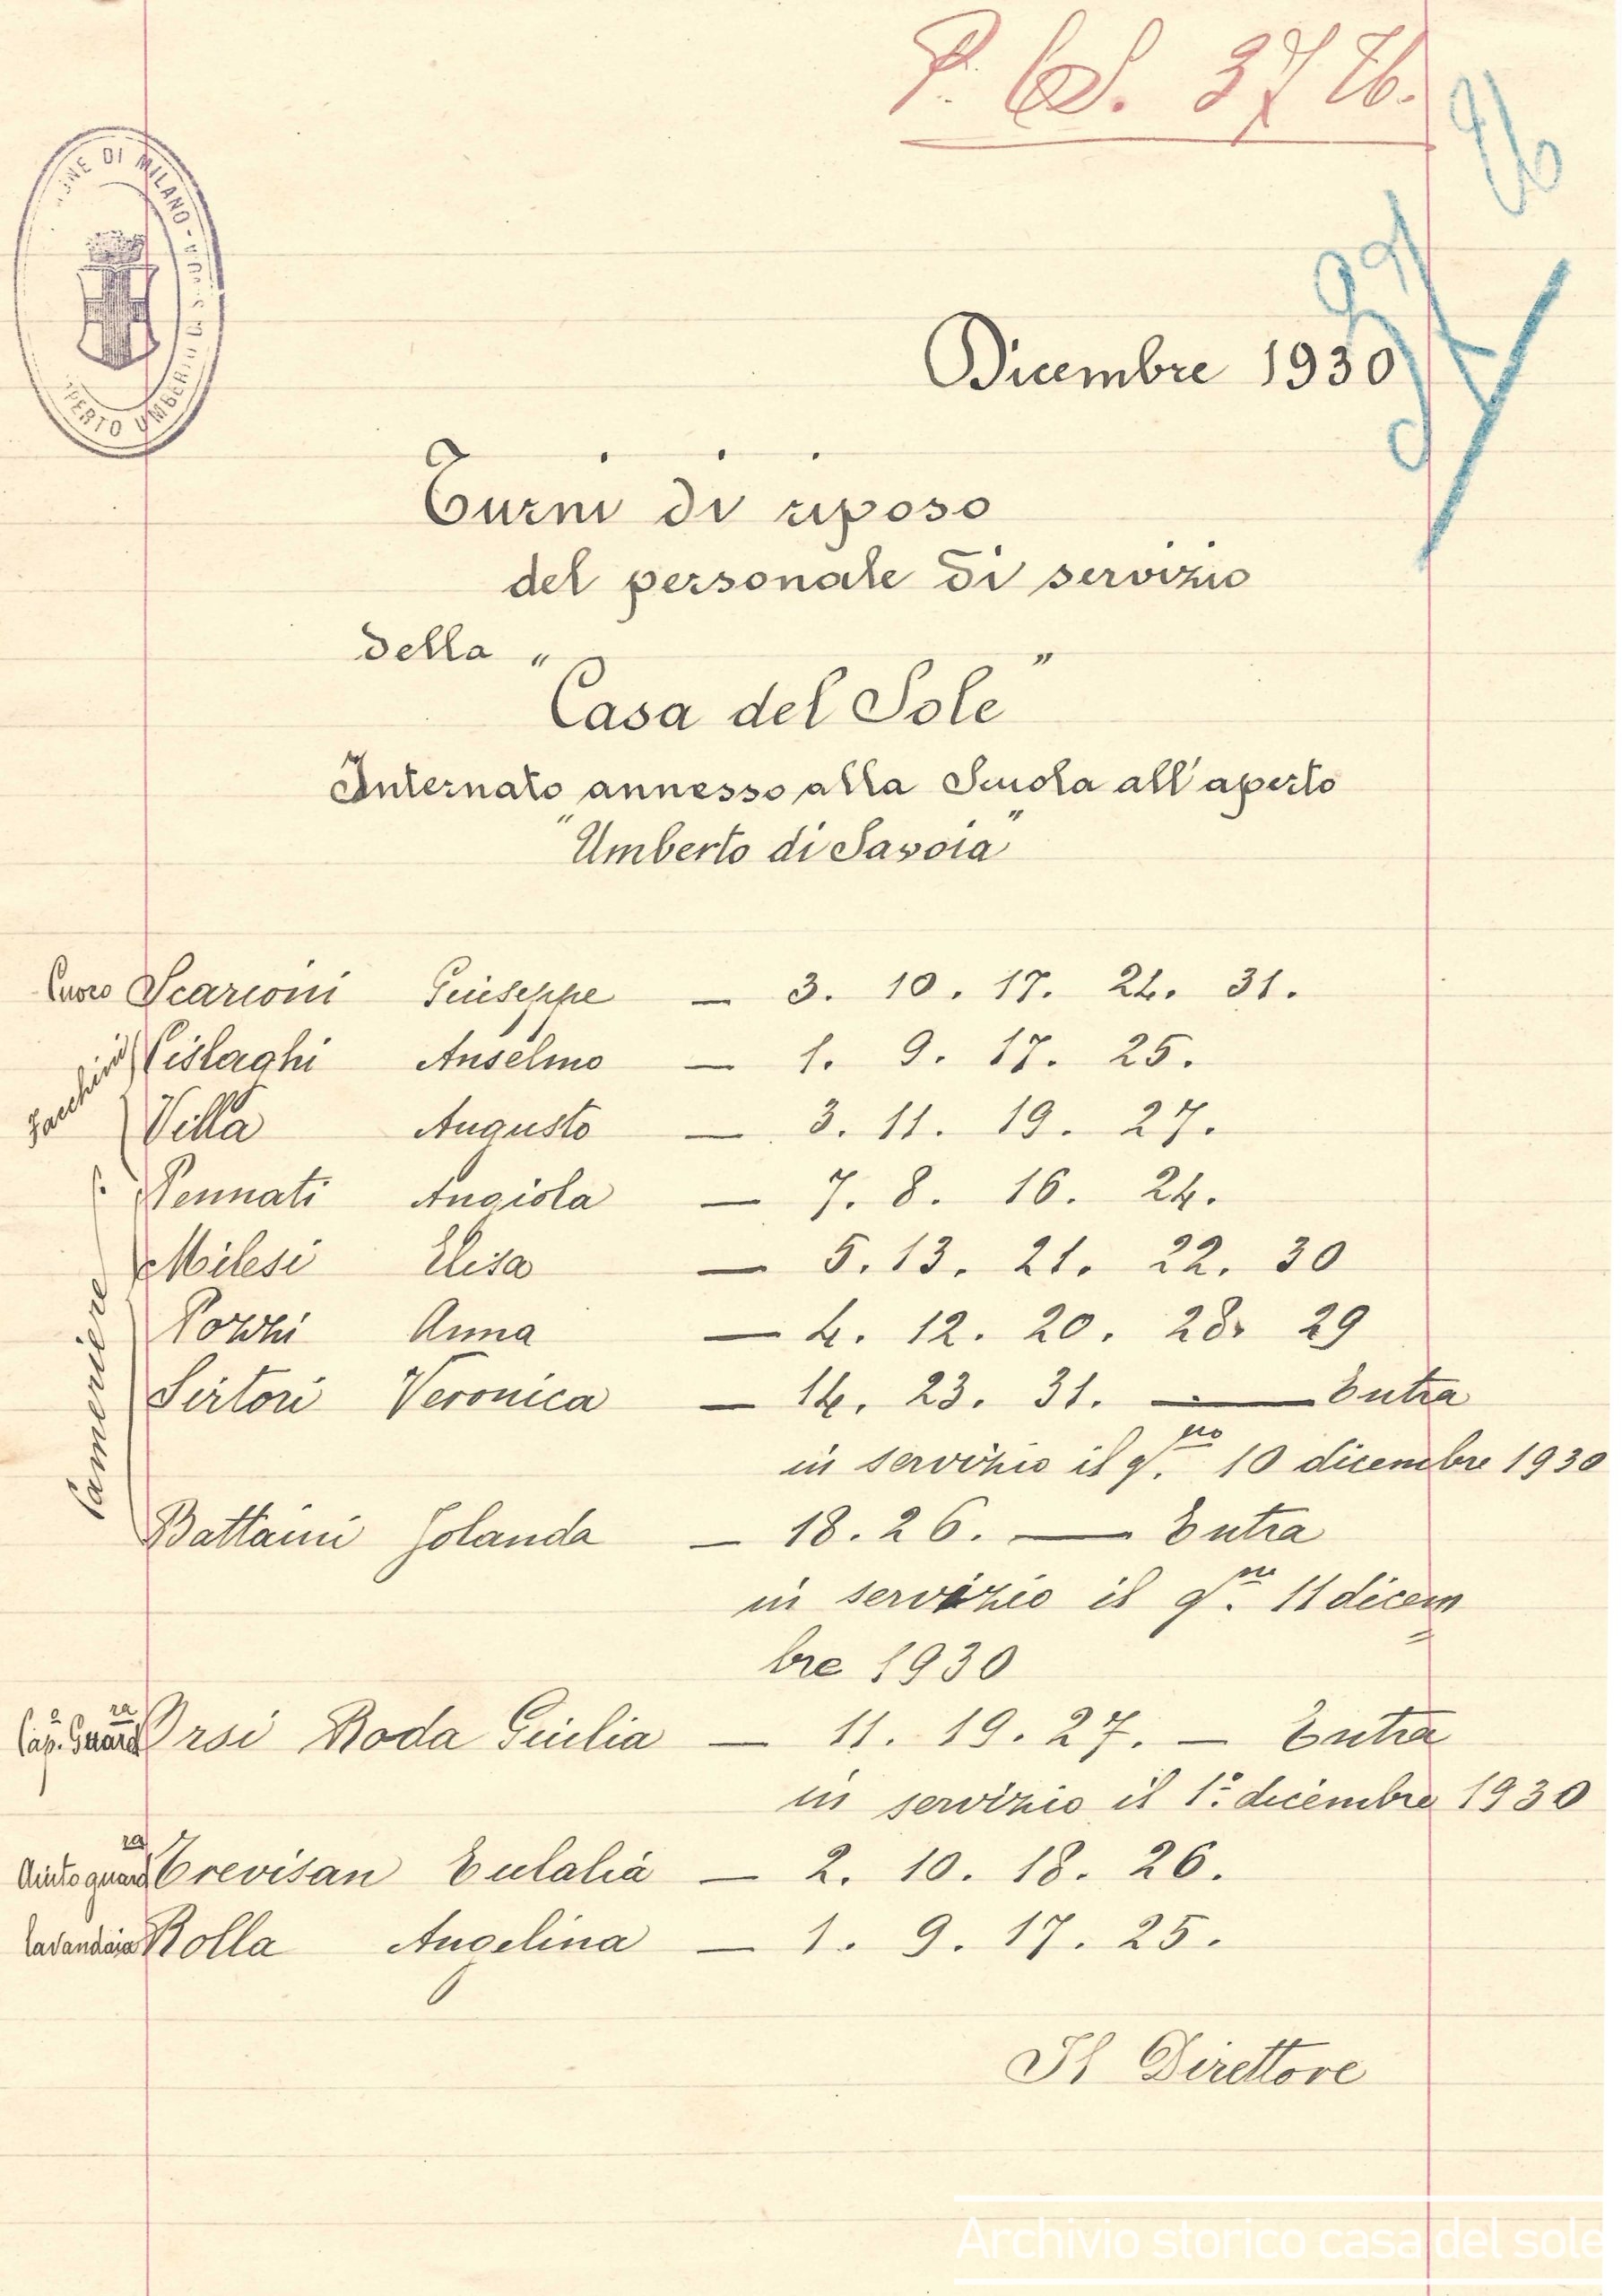 P. CdS. 37 Tb.
37 Tb
DI MILANO
APERTO UMBERTO DI SAVOIA
Dicembre 1930
Turni di riposo
del personale di servizio
della "
Casa del Sole"
Internato annesso alla Scuola all'aperto
"Umberto di Savoia"
Cuoco Scarioni Giuseppe — 3. 10. 17. 24. 31.
Facchini Cislaghi Anselmo — 1. 9. 17. 25.
Villa Augusto — 3. 11. 19. 27.
Cameriere Pennati Angiola — 7. 8. 16. 24.
Milesi Elisa — 5. 13. 21. 22. 30
Pozzi Anna — 4. 12. 20. 28. 29
Sirtori Veronica — 14. 23. 31. — Entra
in servizio il g.no 10 dicembre 1930
Battaini Jolanda — 18. 26. — Entra
in servizio il g.no 11 dicem
bre 1930
Capo Guard.ra Orsi Boda Giulia — 11. 19. 27. — Entra
in servizio il 1° dicembre 1930
Aiuto guard.ra Trevisan Eulalia — 2. 10. 18. 26.
Lavandaia Rolla Angelina — 1. 9. 17. 25.
Il Direttore
Archivio storico casa del sole